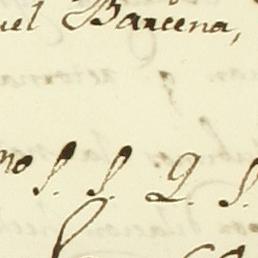 uel Barcena,
mo S. S. Q. S.